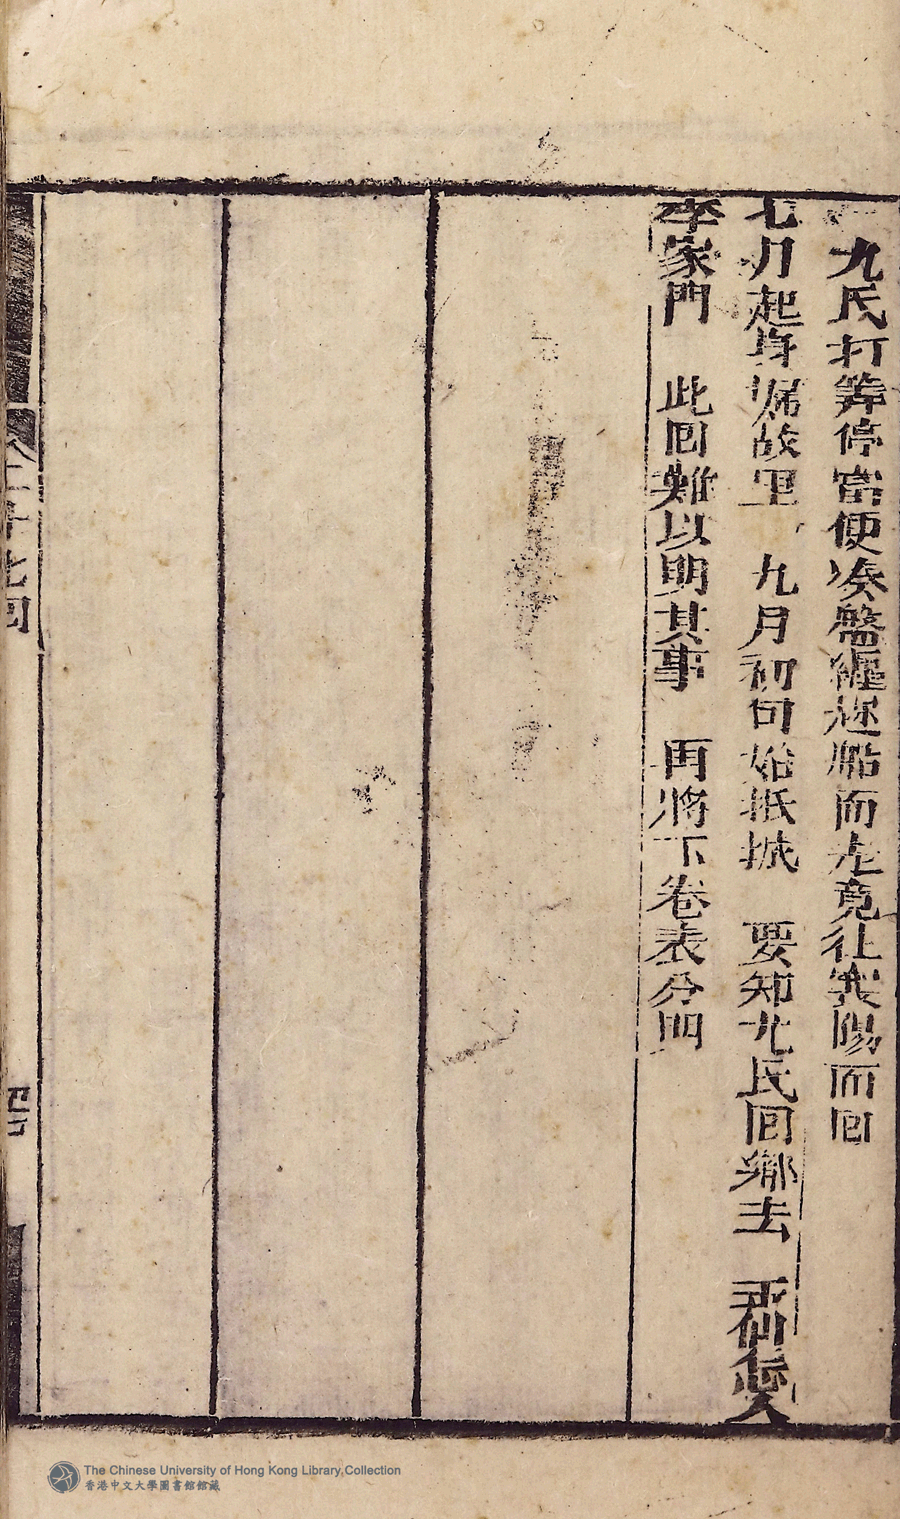 九氏打筭停當便凑盤纏趂船而走竟往襄陽而回
七月起身㱕故里 九月初旬始抵城 要知尤氏回鄉去 人
李家門 此回难以明其事 再將下卷表分明
回
The Chinese University of Hong Kong Library Collection
香港中文大學圖書館館藏